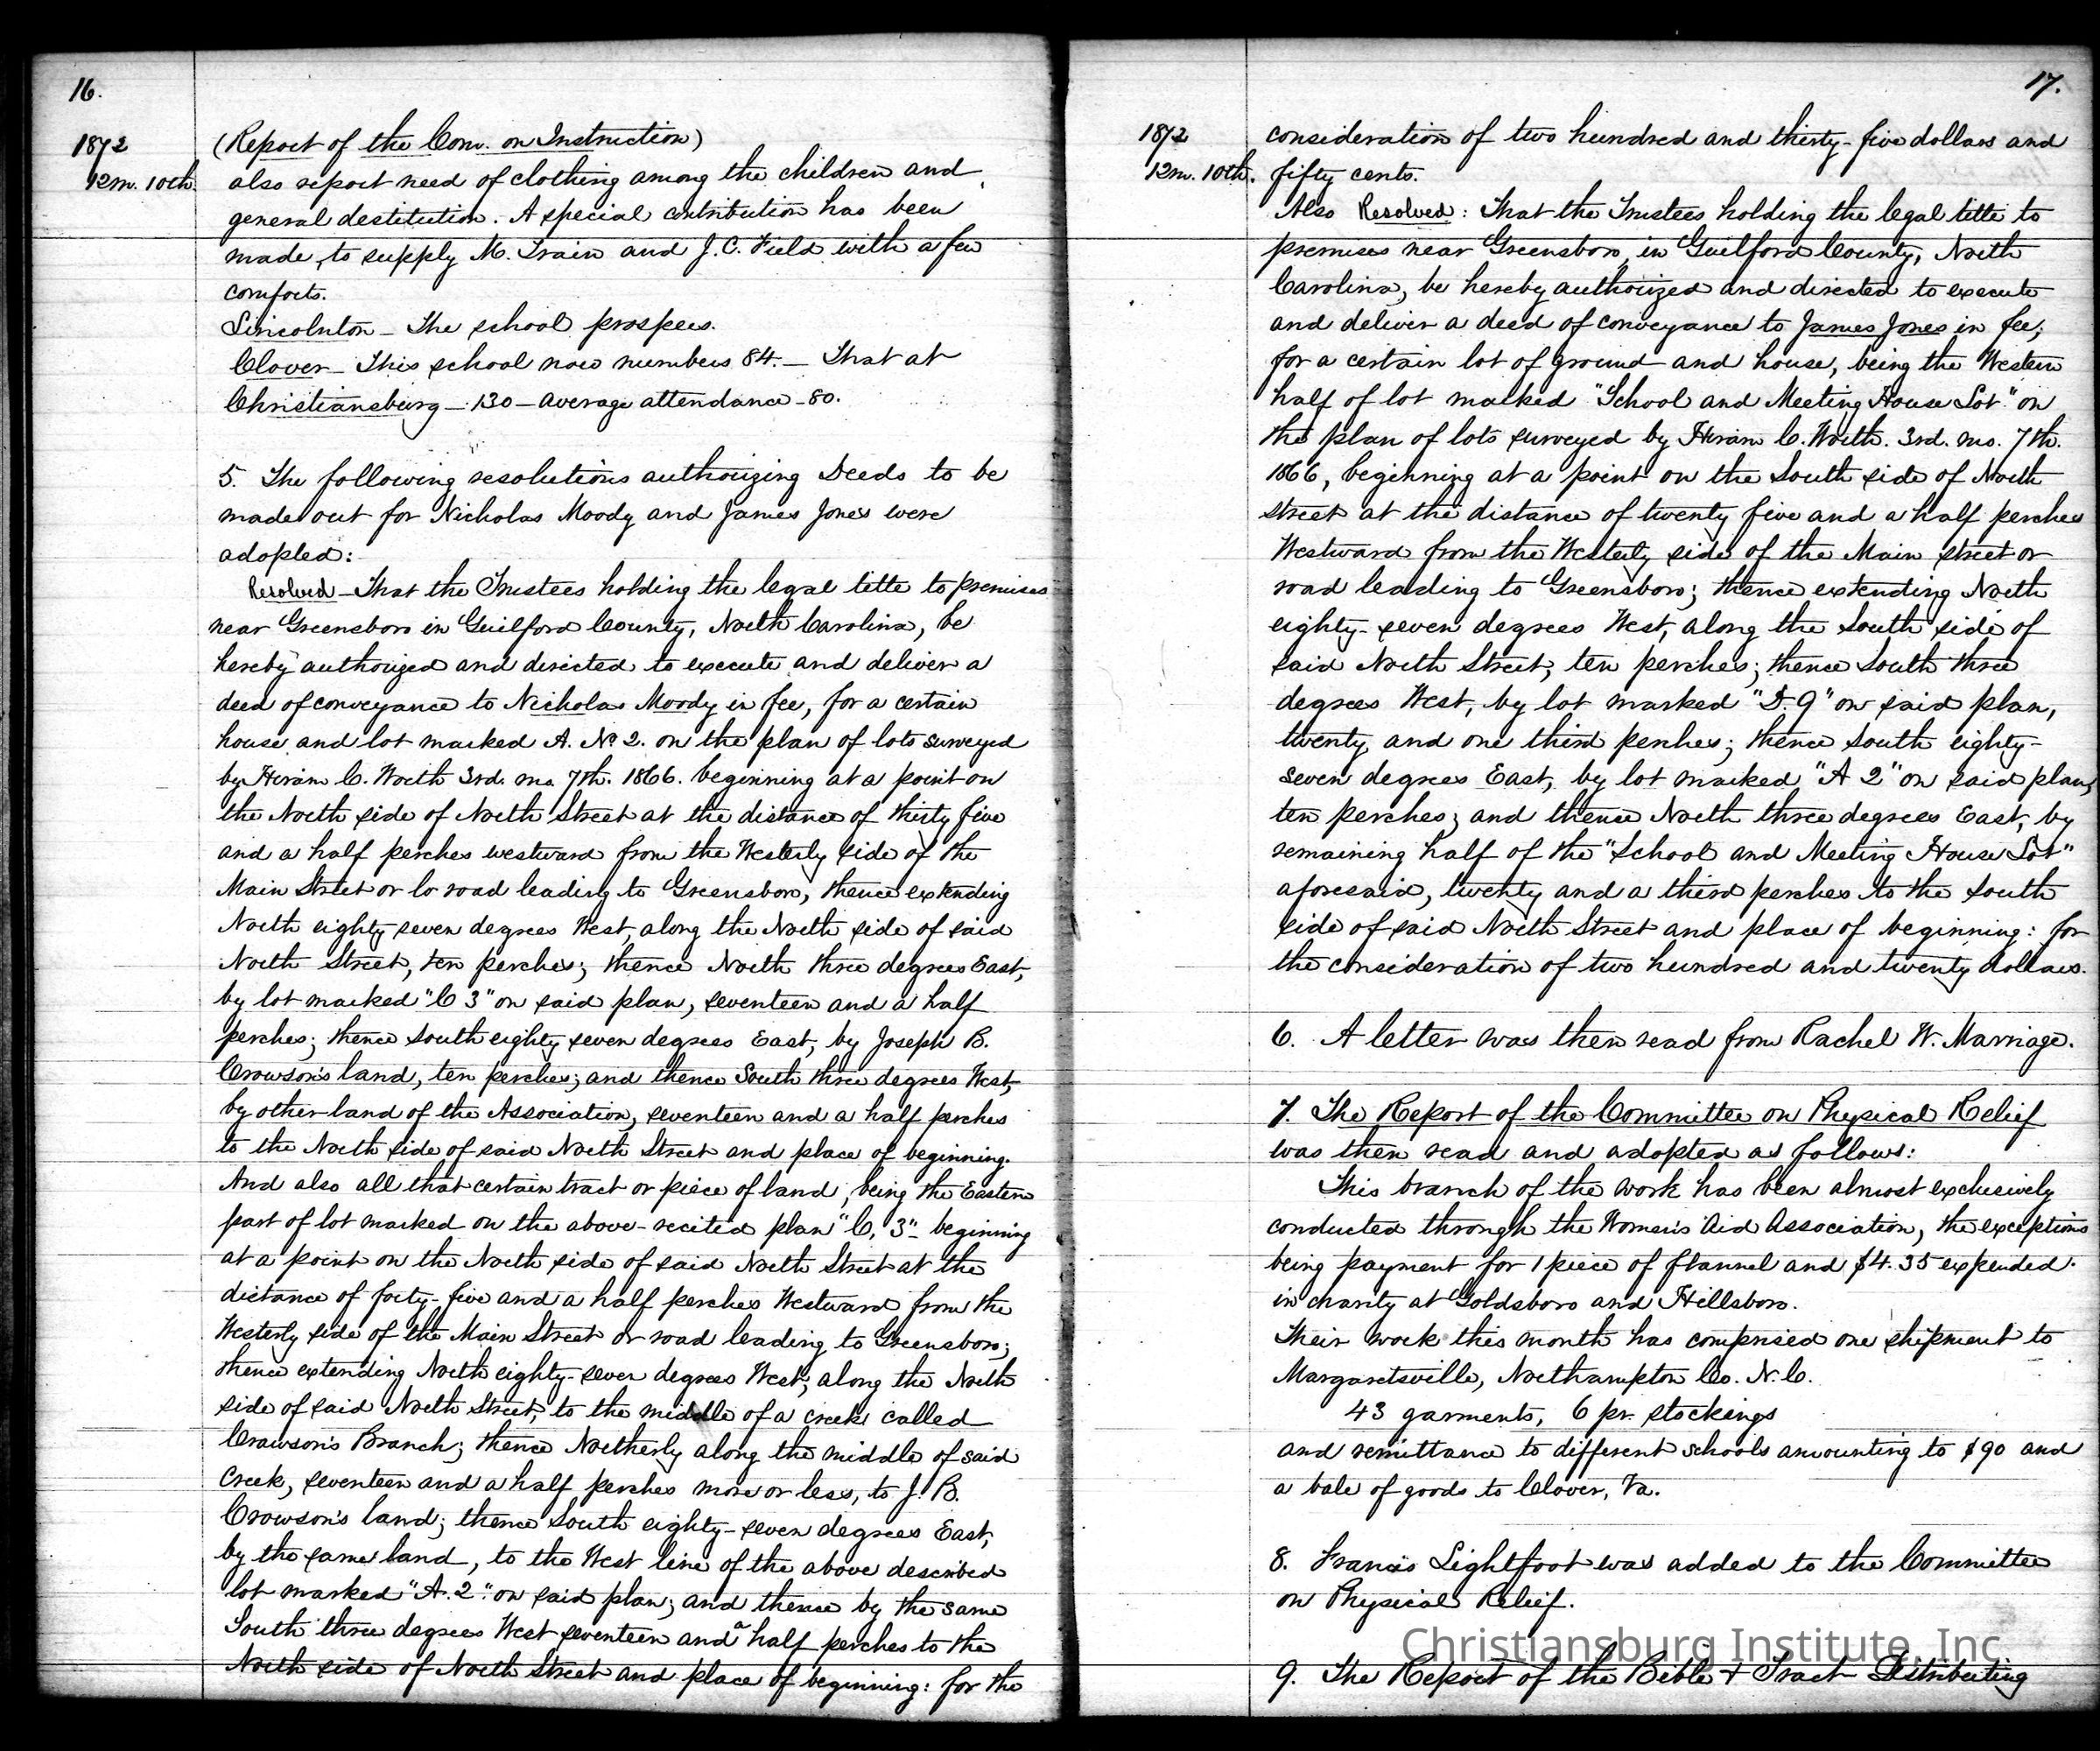 16.
1872
12m. 10th.
(Report of the Com. on Instruction)
also report need of clothing among the children and
general destitution. A special contribution has been
made, to supply M. Train and J. C. Field with a few
comforts.
Lincolnton - The school prospers.
Clover - This school now numbers 84. - That at
Christiansburg - 130 - average attendance - 80.
5. The following resolutions authorizing Deeds to be
made out for Nicholas Moody and James Jones were
adopted:
Resolved - That the Trustees holding the legal title to premises
near Greensboro in Guilford County, North Carolina, be
hereby authorized and directed to execute and deliver a
deed of conveyance to Nicholas Moody in fee, for a certain
house and lot marked A. No 2. on the plan of lots surveyed
by Hiram C. Worth 3rd. mo. 7th. 1866. beginning at a point on
the North side of North Street at the distance of thirty five
and a half perches westward from the Westerly side of the
Main Street or lo road leading to Greensboro, thence extending
North eighty seven degrees West, along the North side of said
North Street, ten perches; thence North three degrees East,
by lot marked "C 3" on said plan, seventeen and a half
perches; thence South eighty seven degrees East, by Joseph B.
Crowson's land, ten perches; and thence South three degrees West,
by other land of the Association, seventeen and a half perches
to the North side of said North Street and place of beginning.
And also all that certain tract or piece of land, being the Eastern
part of lot marked on the above-recited plan "C, 3" beginning
at a point on the North side of said North Street at the
distance of forty-five and a half perches Westward from the
Westerly side of the Main Street or road leading to Greensboro;
thence extending North eighty-seven degrees West, along the North
side of said North Street, to the middle of a creek called
Crawson's Branch; thence Northerly along the middle of said
Creek, seventeen and a half perches more or less, to J. B.
Crowson's land; thence South eighty-seven degrees East,
by the same land, to the West line of the above described
lot marked "A. 2." on said plan; and thence by the same
South three degrees West seventeen and a half perches to the
North side of North Street and place of beginning: for the
17.
1872
12m. 10th.
consideration of two hundred and thirty-five dollars and
fifty cents.
Also Resolved: That the Trustees holding the legal title to
premises near Greensboro, in Guilford County, North
Carolina, be hereby authorized and directed to execute
and deliver a deed of conveyance to James Jones in fee,
for a certain lot of ground and house, being the Western
half of lot marked "School and Meeting House Lot" on
the plan of lots surveyed by Hiram C. Worth. 3rd. mo. 7th.
1866, beginning at a point on the South side of North
street at the distance of twenty five and a half perches
Westward from the Westerly side of the Main street or
road leading to Greensboro; thence extending North
eighty-seven degrees West, along the South side of
said North Street, ten perches; thence South three
degrees West, by lot marked "D. 9" on said plan,
twenty and one third perches; thence South eighty-
seven degrees East, by lot marked "A 2" on said plan,
ten perches; and thence North three degrees East, by
remaining half of the "School and Meeting House Lot"
aforesaid, twenty and a third perches to the South
side of said North Street and place of beginning: for
the consideration of two hundred and twenty dollars.
6. A letter was then read from Rachel W. Marriage.
7. The Report of the Committee on Physical Relief
was then read and adopted as follows:
This branch of the work has been almost exclusively
conducted through the Women's Aid Association, the exceptions
being payment for 1 piece of flannel and $4.35 expended
in charity at Goldsboro and Hillsboro.
Their work this month has comprised one shipment to
Margaretsville, Northampton Co. N. C.
43 garments, 6 pr. stockings
and remittance to different schools amounting to $90 and
a bale of goods to Clover, Va.
8. Francis Lightfoot was added to the Committee
on Physical Relief.
Christiansburg Institute, Inc
9. The Report of the Bible & Tract Distributing